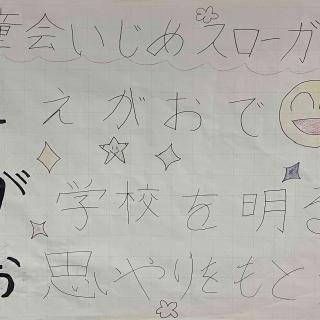 童会いじめスローガ
えがおで
が 学校を明る
お 思いやりをもと